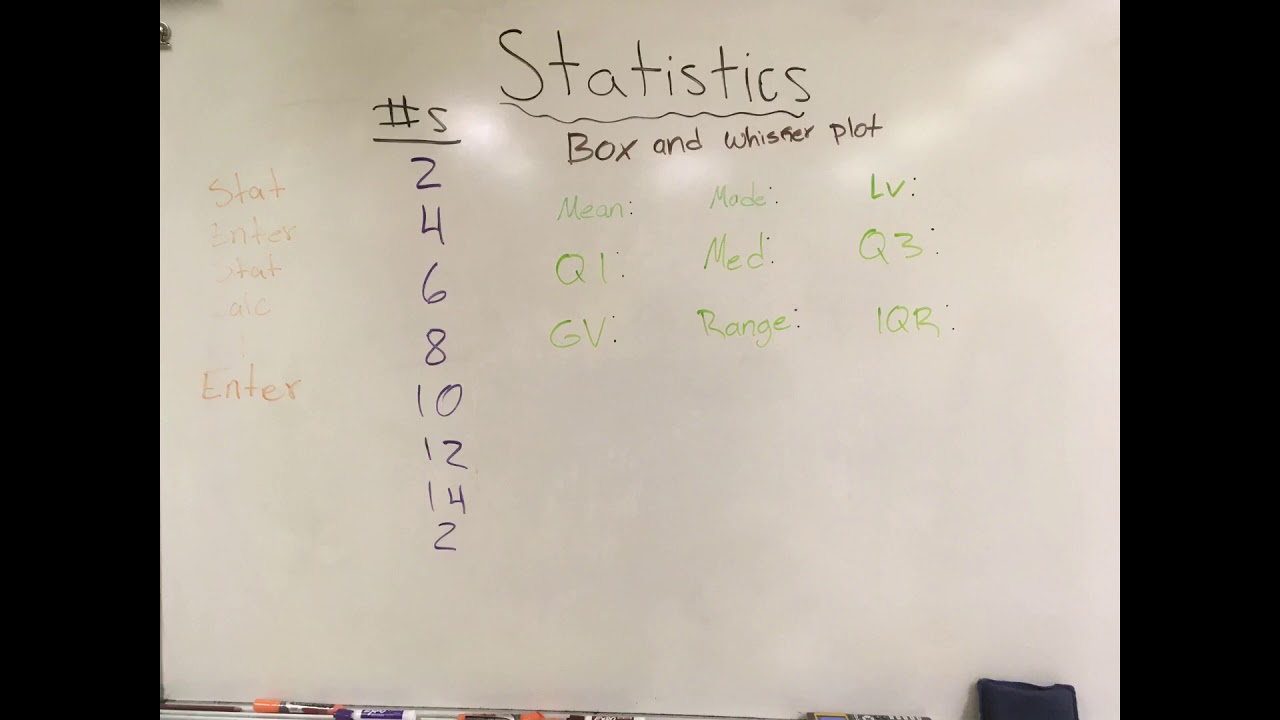 Statistics
Box and whisker plot
#s
2
4
6
8
10
12
14
2
Stat
Enter
Stat
Enter
Mean: Mode: Lv:
Q1: Med: Q3:
GV: Range: IQR: